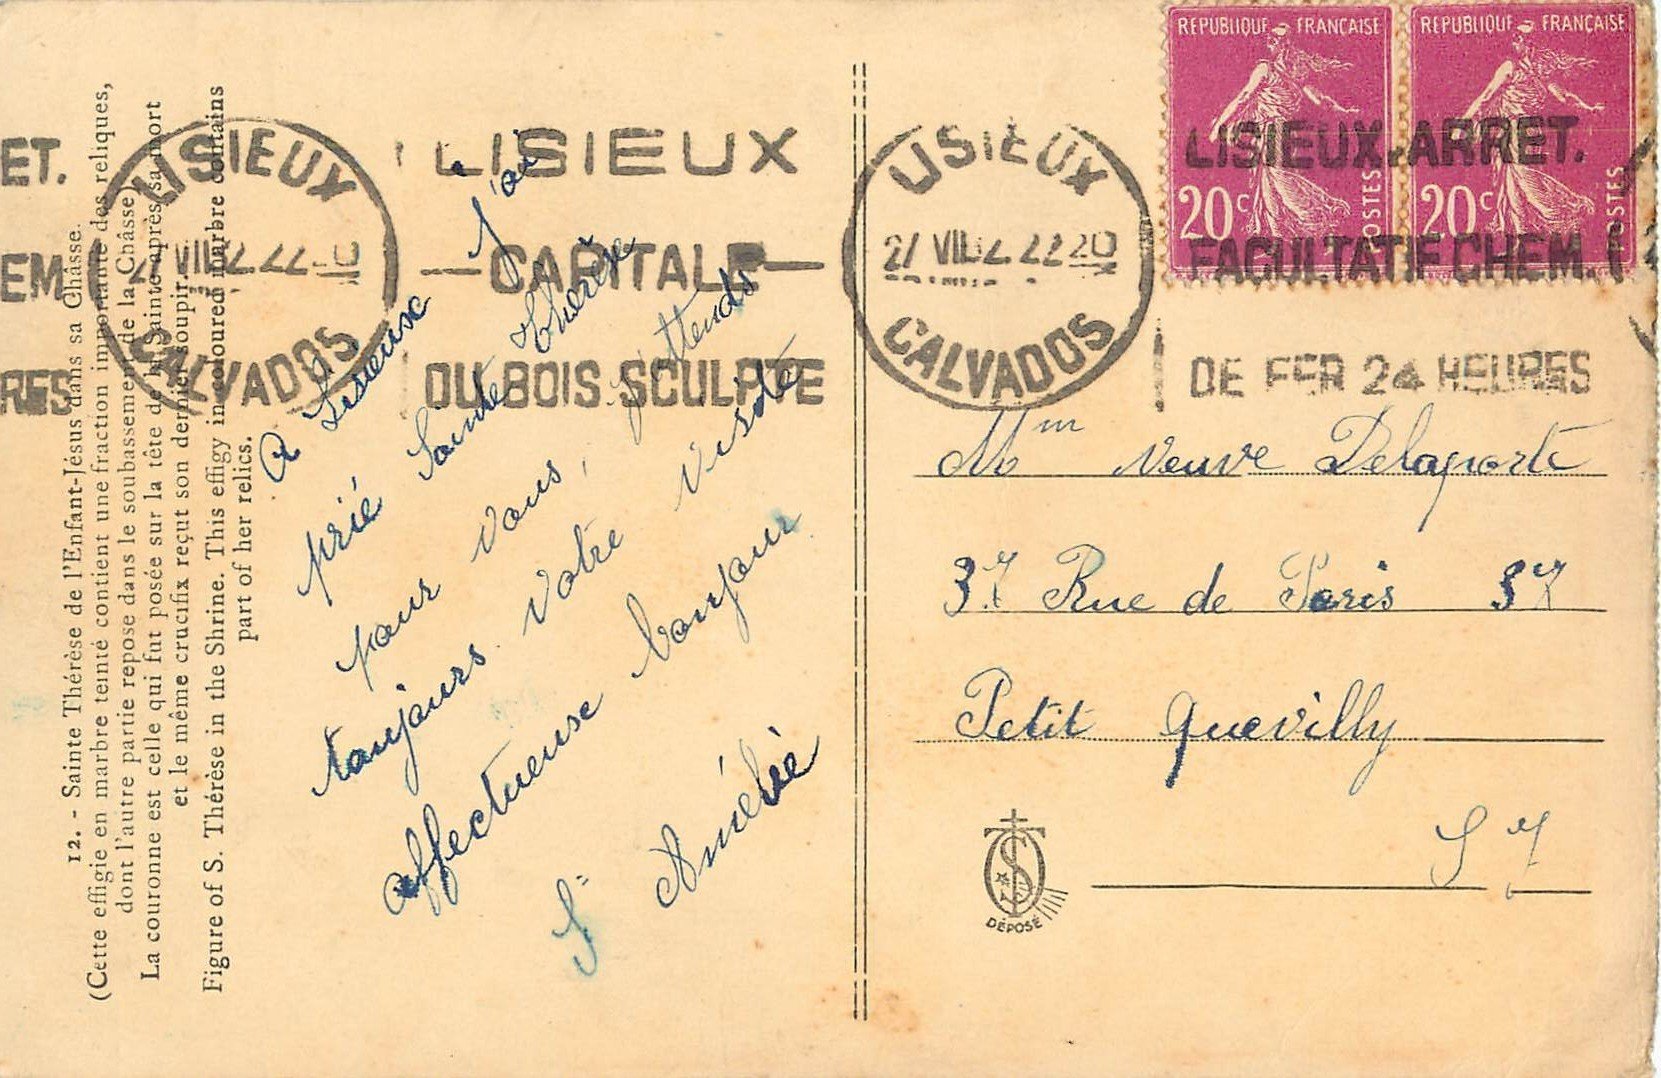 12. - Sainte Thérèse de l'Enfant-Jésus dans sa Châsse.
(Cette effigie en marbre teinté contient une fraction importante des reliques,
dont l'autre partie repose dans le soubassement de la Châsse)
La couronne est celle qui fut posée sur la tête de la Sainte après sa mort
et le même crucifix reçut son dernier soupir.
Figure of S. Thérèse in the Shrine. This effigy in coloured marbre contains
part of her relics.
ET.
EM
RES
LISIEUX
CALVADOS
LISIEUX
CAPITALE
DU BOIS SCULPTE
A Lisieux J'ai
prié Sainte Thérèse
pour vous, j'attends
toujours votre visite
affectueuse bonjour
Sr Amélie
LISIEUX
CALVADOS
REPUBLIQUE FRANÇAISE
20c
POSTES
REPUBLIQUE FRANÇAISE
20c
POSTES
LISIEUX. ARRET.
FACULTATIF CHEM.
DE FER 24 HEURES
Mme Veuve Delaporte
37 Rue de Paris 37
Petit Quevilly
S I
DÉPOSÉ